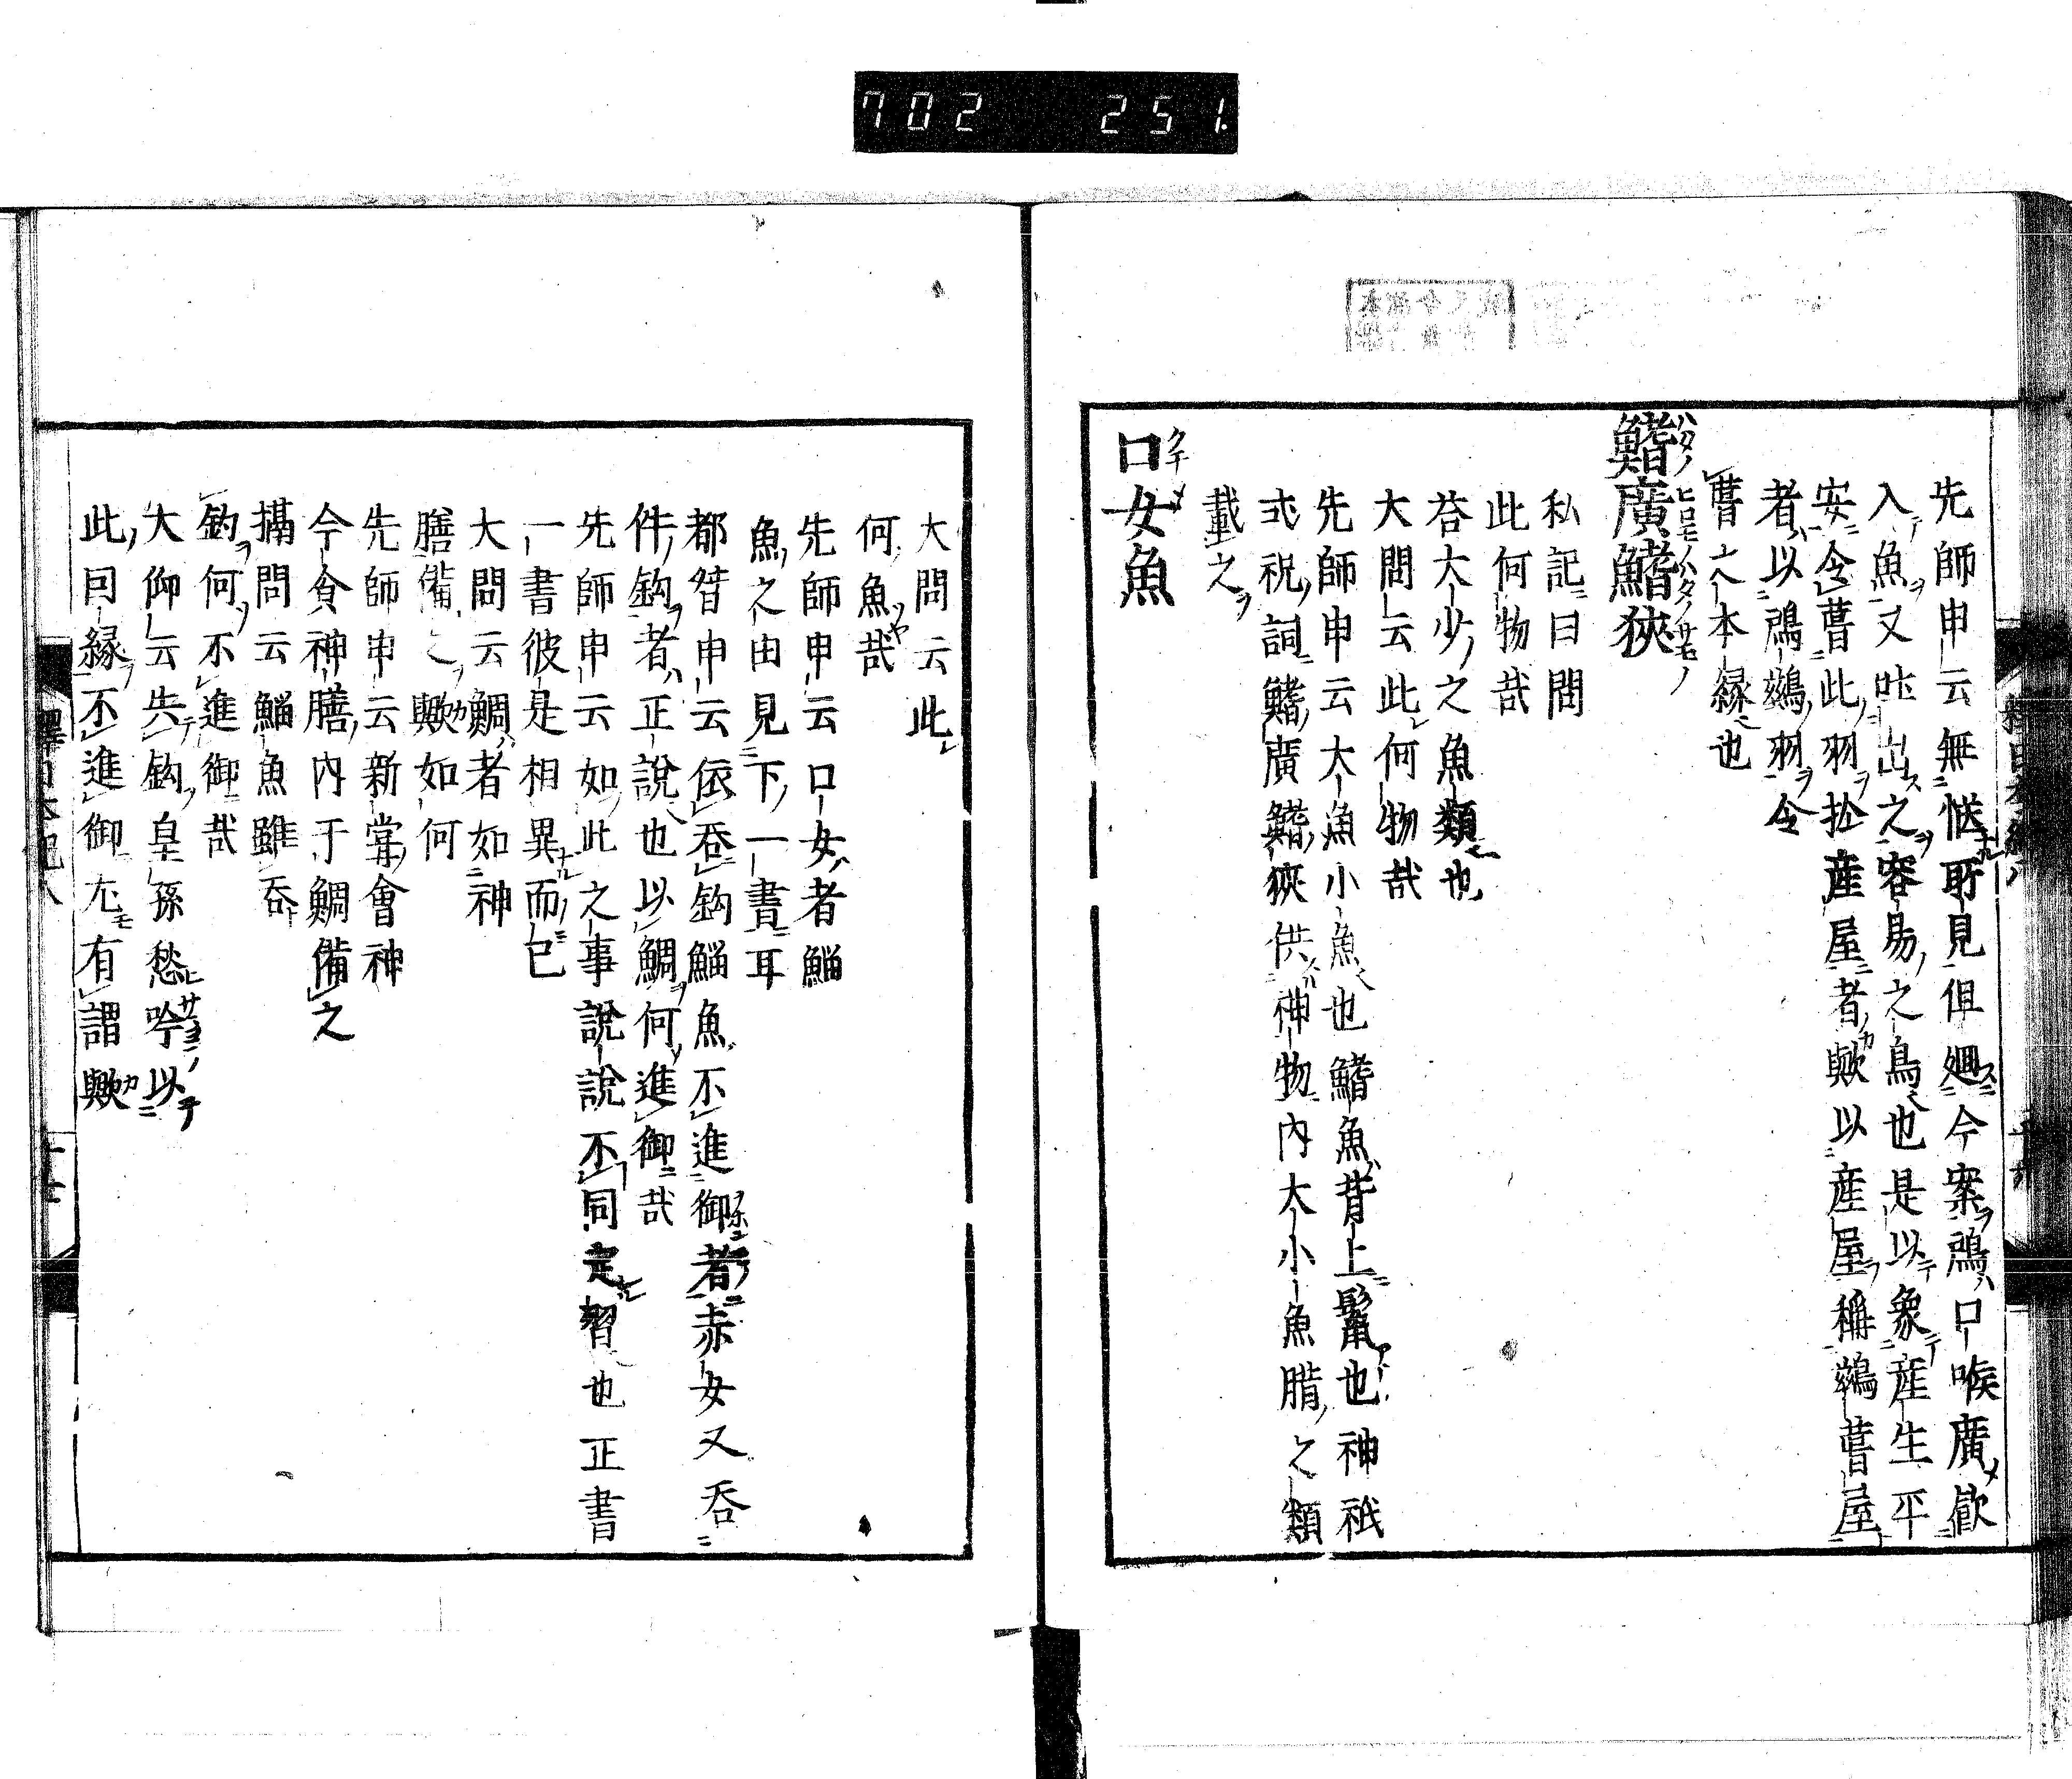 702 251.
先師申云無慥所見但廻今案鸕口喉廣飲
入魚又吐出之容易之鳥也是以象産生平
安令葺此羽於産屋者歟以産屋稱鷀葺屋
者以鸕鷀羽令
葺之本縁也
鰭廣鰭狹
私記曰問
此何物哉
荅大少之魚類也
大問云此何物哉
先師申云大魚小魚也鰭魚背上鬣也神祇
式祝詞鰭廣鰭狹供神物內大小魚腊之類
載之
口女魚
大問云此
何魚哉
先師申云口女者鯔
魚之由見下一書耳
都督申云依吞鈎鯔魚不進御者赤女又吞
件鈎者正說也以鯛何進御哉
先師申云如此之事說說不同定習也正書
一書彼是相異而已
大問云鯛者如神
膳備之歟如何
先師申云新嘗會神
今食神膳內于鯛備之
攝問云鯔魚雖吞
鈎何不進御哉
大仰云失鈎皇孫愁吟以
此因縁不進御尤有謂歟